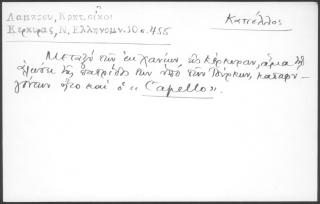 Λαμπρου, Κρητ. οἶκοι
Κερκυρας, Ν. Ελληνομν. 10 σ. 455
Καπέλλος
Μεταξύ τῶν ἐκ Χανίων εἰς Κέρκυραν, ἅμα τῇ
ἁλώσει τῆς πατρίδος των ὑπό τῶν Τούρκων, καταφυ-
γόντων ἦτο καί ὁ "Capello".